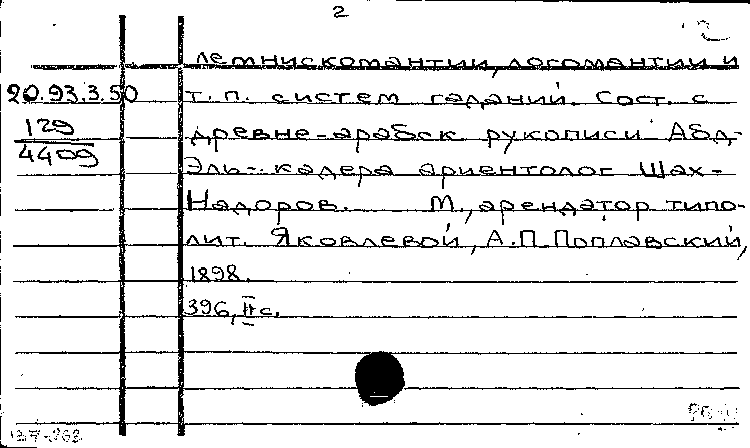 2
лемнискомантии, логомантии и
20.93.3.50 т.п. систем гаданий. Сост. с
129 древне-арабск рукописи Абд-
4409 Эль-кадера ориентолог Шах-
Надоров. М., арендатор типо-
лит. Яковлевой, А.П. Поплавский,
1898.
396, II с.